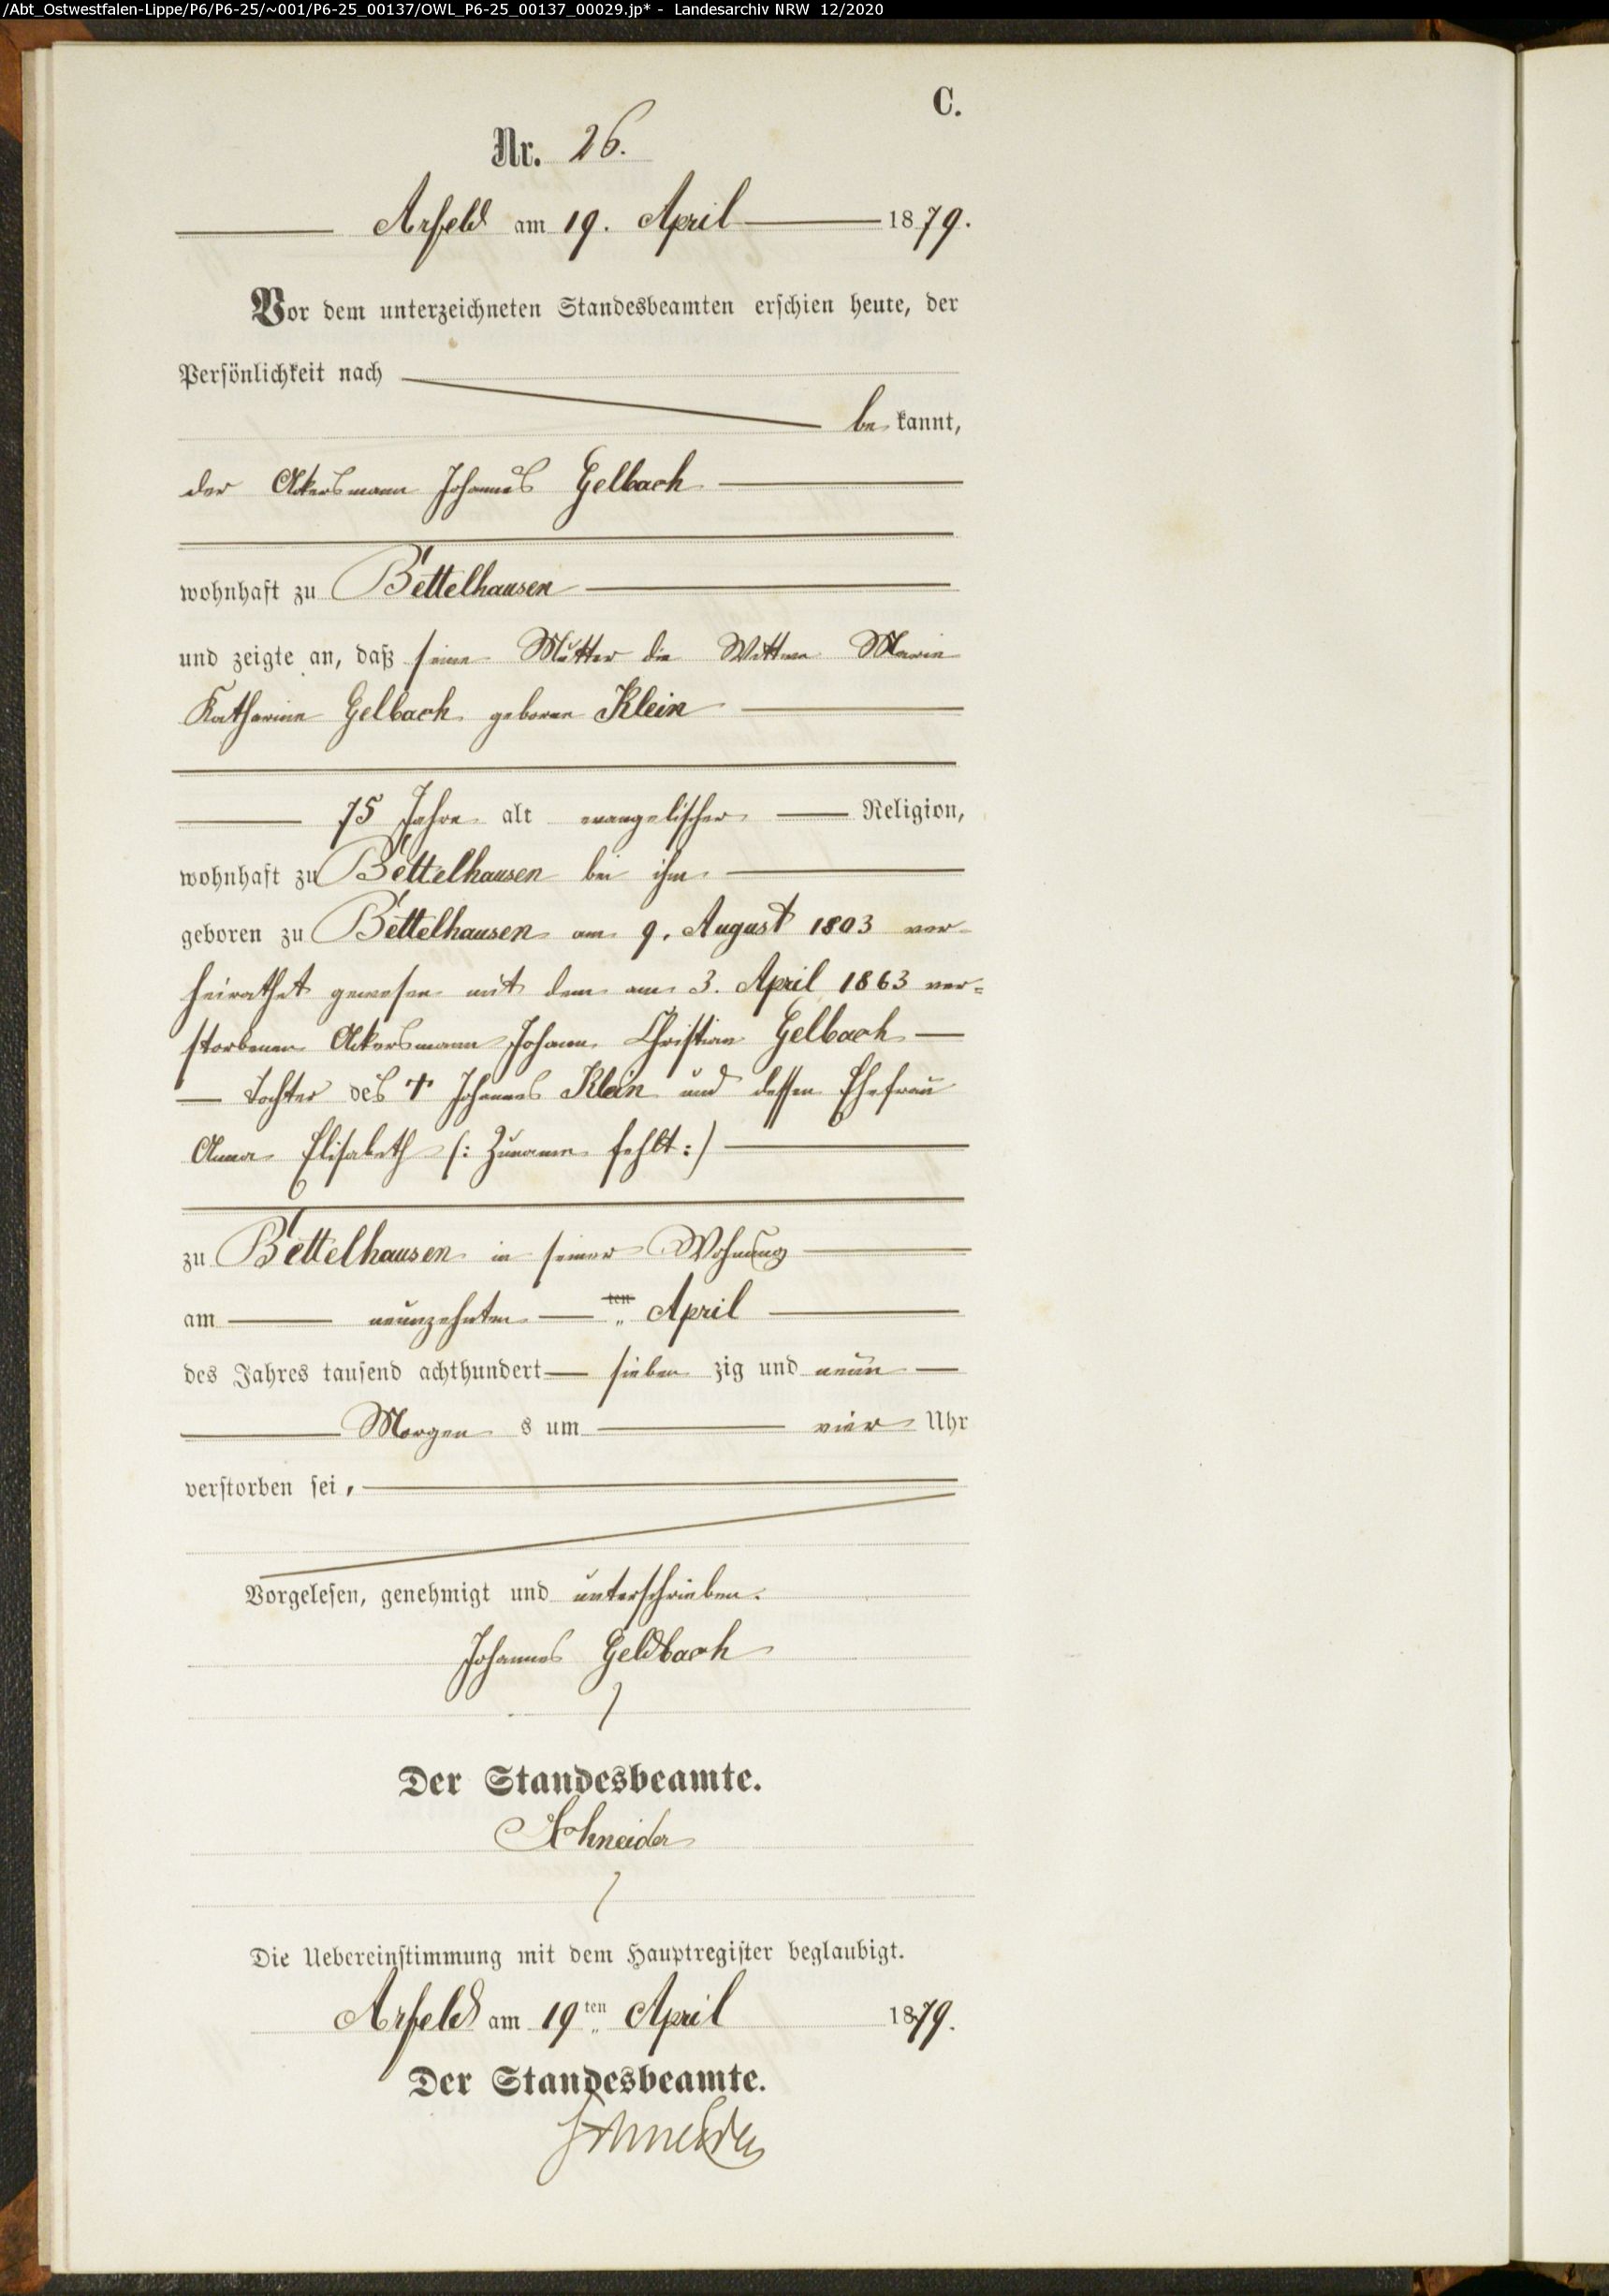 /Abt_Ostwestfalen-Lippe/P6/P6-25/~001/P6-25_00137/OWL_P6-25_00137_00029.jp* - Landesarchiv NRW 12/2020
C.
Nr. 26.
Arfeld am 19. April 1879.
Vor dem unterzeichneten Standesbeamten erschien heute, der
Persönlichkeit nach
be kannt,
der Ackersmann Johannes Gelbach
wohnhaft zu Bettelhausen
und zeigte an, daß seine Mutter die Wittwe Marie
Katharine Gelbach geborene Klein
75 Jahre alt evangelischer Religion,
wohnhaft zu Bettelhausen bei ihm
geboren zu Bettelhausen am 9. August 1803 ver-
heirathet gewesen mit dem am 3. April 1863 ver=
storbenen Ackersmann Johann Christian Gelbach
Tochter des † Johannes Klein und dessen Ehefrau
Anna Elisabeth (: Zuname fehlt :)
zu Bettelhausen in seiner Wohnung
am neunzehnten ten April
des Jahres tausend achthundert sieben zig und neun
Morgen s um vier Uhr
verstorben sei,
Vorgelesen, genehmigt und unterschrieben.
Johannes Geldbach
Der Standesbeamte.
Schneider
Die Uebereinstimmung mit dem Hauptregister beglaubigt.
Arfeld am 19ten April 1879.
Der Standesbeamte.
Schneider